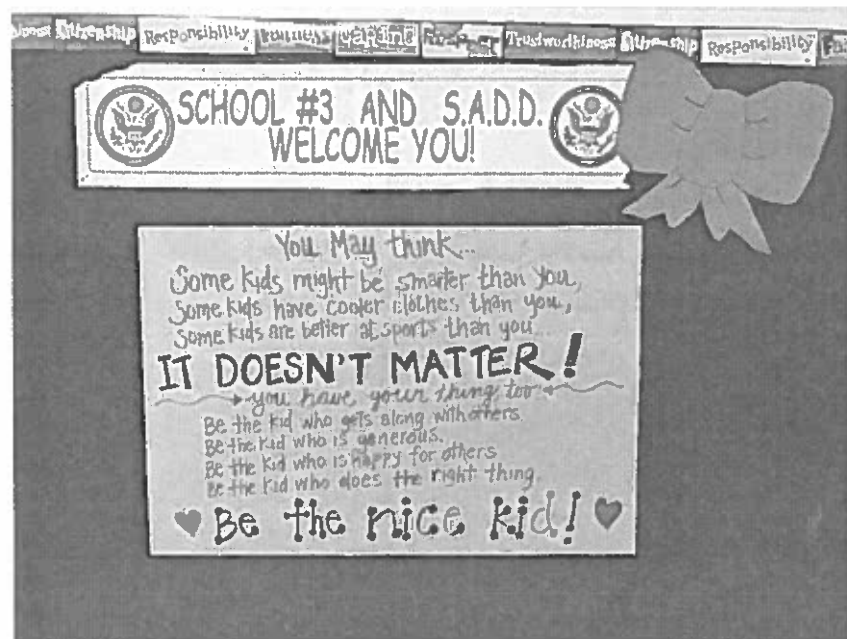 Citizenship Responsibility Fairness Caring Respect Trustworthiness Citizenship Responsibility
SCHOOL #3 AND S.A.D.D.
WELCOME YOU!
You May think...
Some kids might be smarter than you,
Some kids have cooler clothes than you,
Some kids are better at sports than you...
IT DOESN'T MATTER!
you have your thing too
Be the kid who gets along with others.
Be the kid who is generous.
Be the kid who is happy for others
Be the kid who does the right thing.
Be the nice kid!